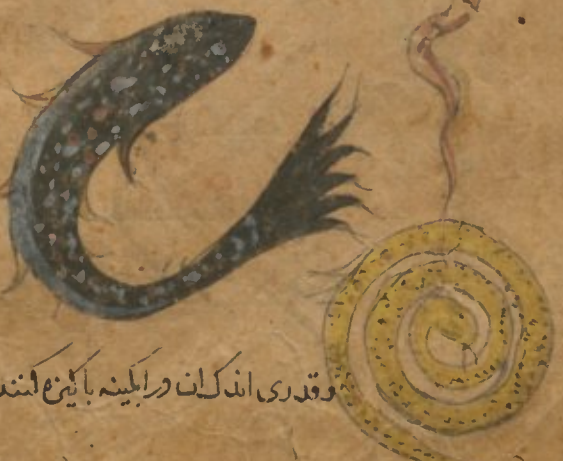 وقدری اندک ان در ابکینه باکیزه کنند